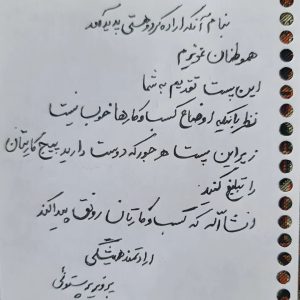 بنام آنکه اراده کرد و هستی پدید آمد
هموطنان عزیزم
این پست تقدیم به شما
نظر باینکه اوضاع کسب و کارها خوب نیست
زیر این پست هر جور که دوست دارید پیج کاریتان
را تبلیغ کنید
انشاالله که کسب و کارتان رونق پیدا کند
ارادتمند همیشگی
پرویز پرستوئی